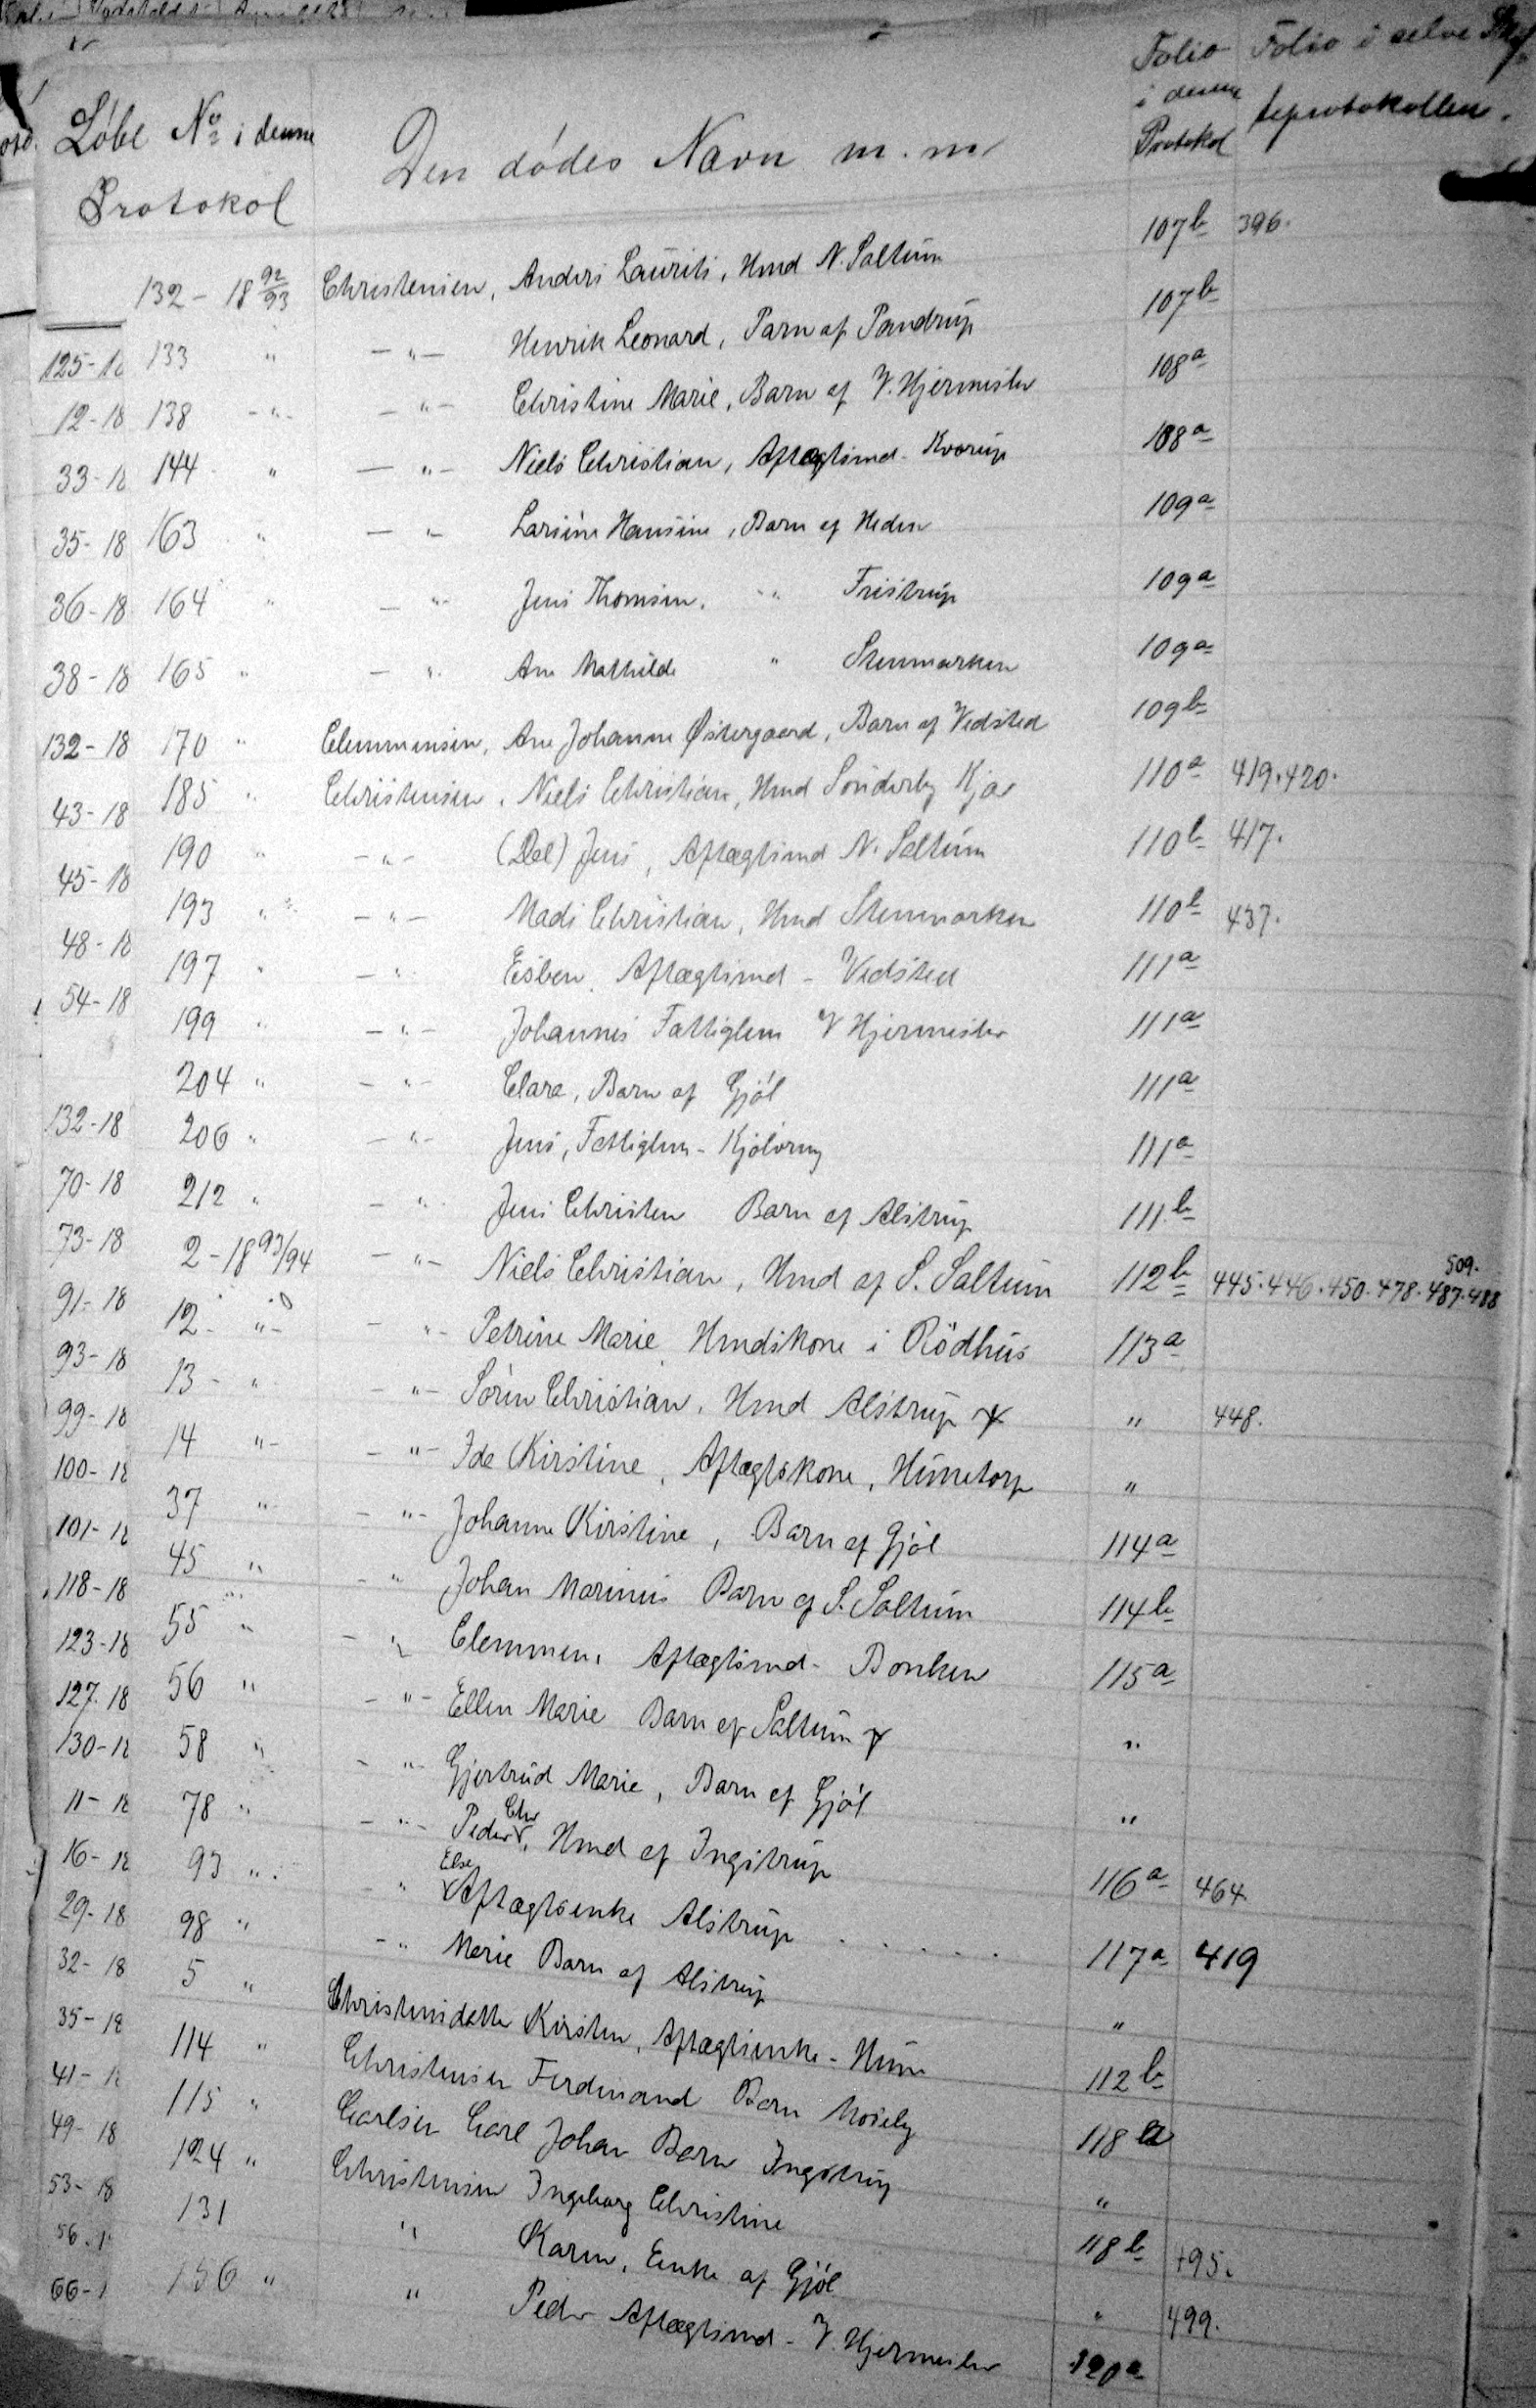 Løbe No i denne Protokol | Den dødes Navn m. m. | Folio i denne Protokol | Folio i selve Skifteprotokollen.
132 - 18 92/93 Christensen, Anders Laurits, Hmd N. Saltum 107b 396.
125-18 133 " - " - Henrik Leonard, Barn af Pandrup 107b
12-18 138 - " - - " - Christine Marie, Barn af V. Hjermeslev 108a
33-18 144 " - " - Niels Christian, Aftægtsmd - Kvorup 108a
35-18 163 " - " - Larsine Hansine, Barn af Heden 109a
36-18 164 " - " - Jens Thomsen, " Fristrup 109a
38-18 165 " - " Ane Mathilde " Stenmarken 109a
132-18 170 " Clemmensen, Ane Johanne Østergaard, Barn af Vedsted 109b
43-18 185 " Christensen, Niels Christian, Hmd Sönderby Kjær 110a 419.420.
45-18 190 " - " - (Dal) Jens, Aftægtsmd N. Saltum 110b 417.
48-18 193 " - " - Mads Christian, Hmd Stenmarken 110b 437.
54-18 197 " - " Esben, Aftægtsmd - Vedsted 111a
199 " - " - Johannes Fattiglem V Hjermeslev 111a
204 " - " - Clara, Barn af Gjøl 111a
132-18 206 " - " - Jens, Fattiglem - 111a
70-18 212 " - " Jens Christen Barn af Alstrup 111b
73-18 2-18 93/94 - " - Niels Christian, Hmd af S. Saltum 112b 445.446.450.478.487.488 509.
91-18 12 - " - - " - Petrine Marie Hmdskone i Rödhus 113a
93-18 13 - " - " - Sören Christian, Hmd Alstrup " 448.
99-18 14 " - - " - Ida Kirstine, Aftægtskone, Hunetorp "
100-18 37 " - " - Johanne Kirstine, Barn af Gjøl 114a
101-18 45 " - " Johan Marinus Barn af S. Saltum 114b
118-18 55 " - " Clemmen, Aftægtsmd - Bonken 115a
123-18 56 " - " - Ellen Marie Barn af Saltum "
127-18 58 " - " Gjertrud Marie, Barn af Gjøl "
130-18 78 " - " - Peder Chr, Hmd af Ingstrup 116a 464
11-18 93 " - " Else Aftægtsenke Alstrup . . . . . 117a 419
16-18 98 " - " Marie Barn af Alstrup "
29-18 5 " Christensdatter Kirsten, Aftægtsenke - Hune 112b
32-18 114 " Christensen Ferdinand Barn Moseby 118a
35-18 115 " Carlsen Carl Johan Barn Ingstrup "
41-18 124 " Christensen Ingeborg Christine 118b 495.
49-18 131 " Karen, Enke af Gjøl " 499.
53-18 156 " " Peder Aftægtsmd - V. Hjermeslev 120a
56-1
66-1